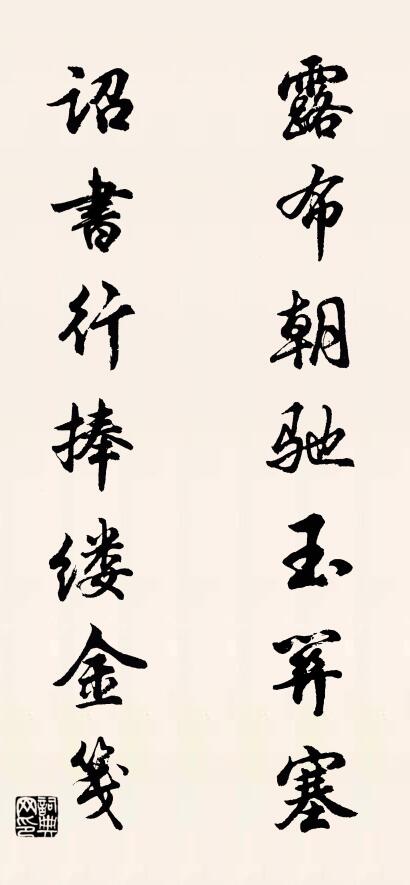 露布朝驰玉关塞
诏书行捧缕金笺
词典网印